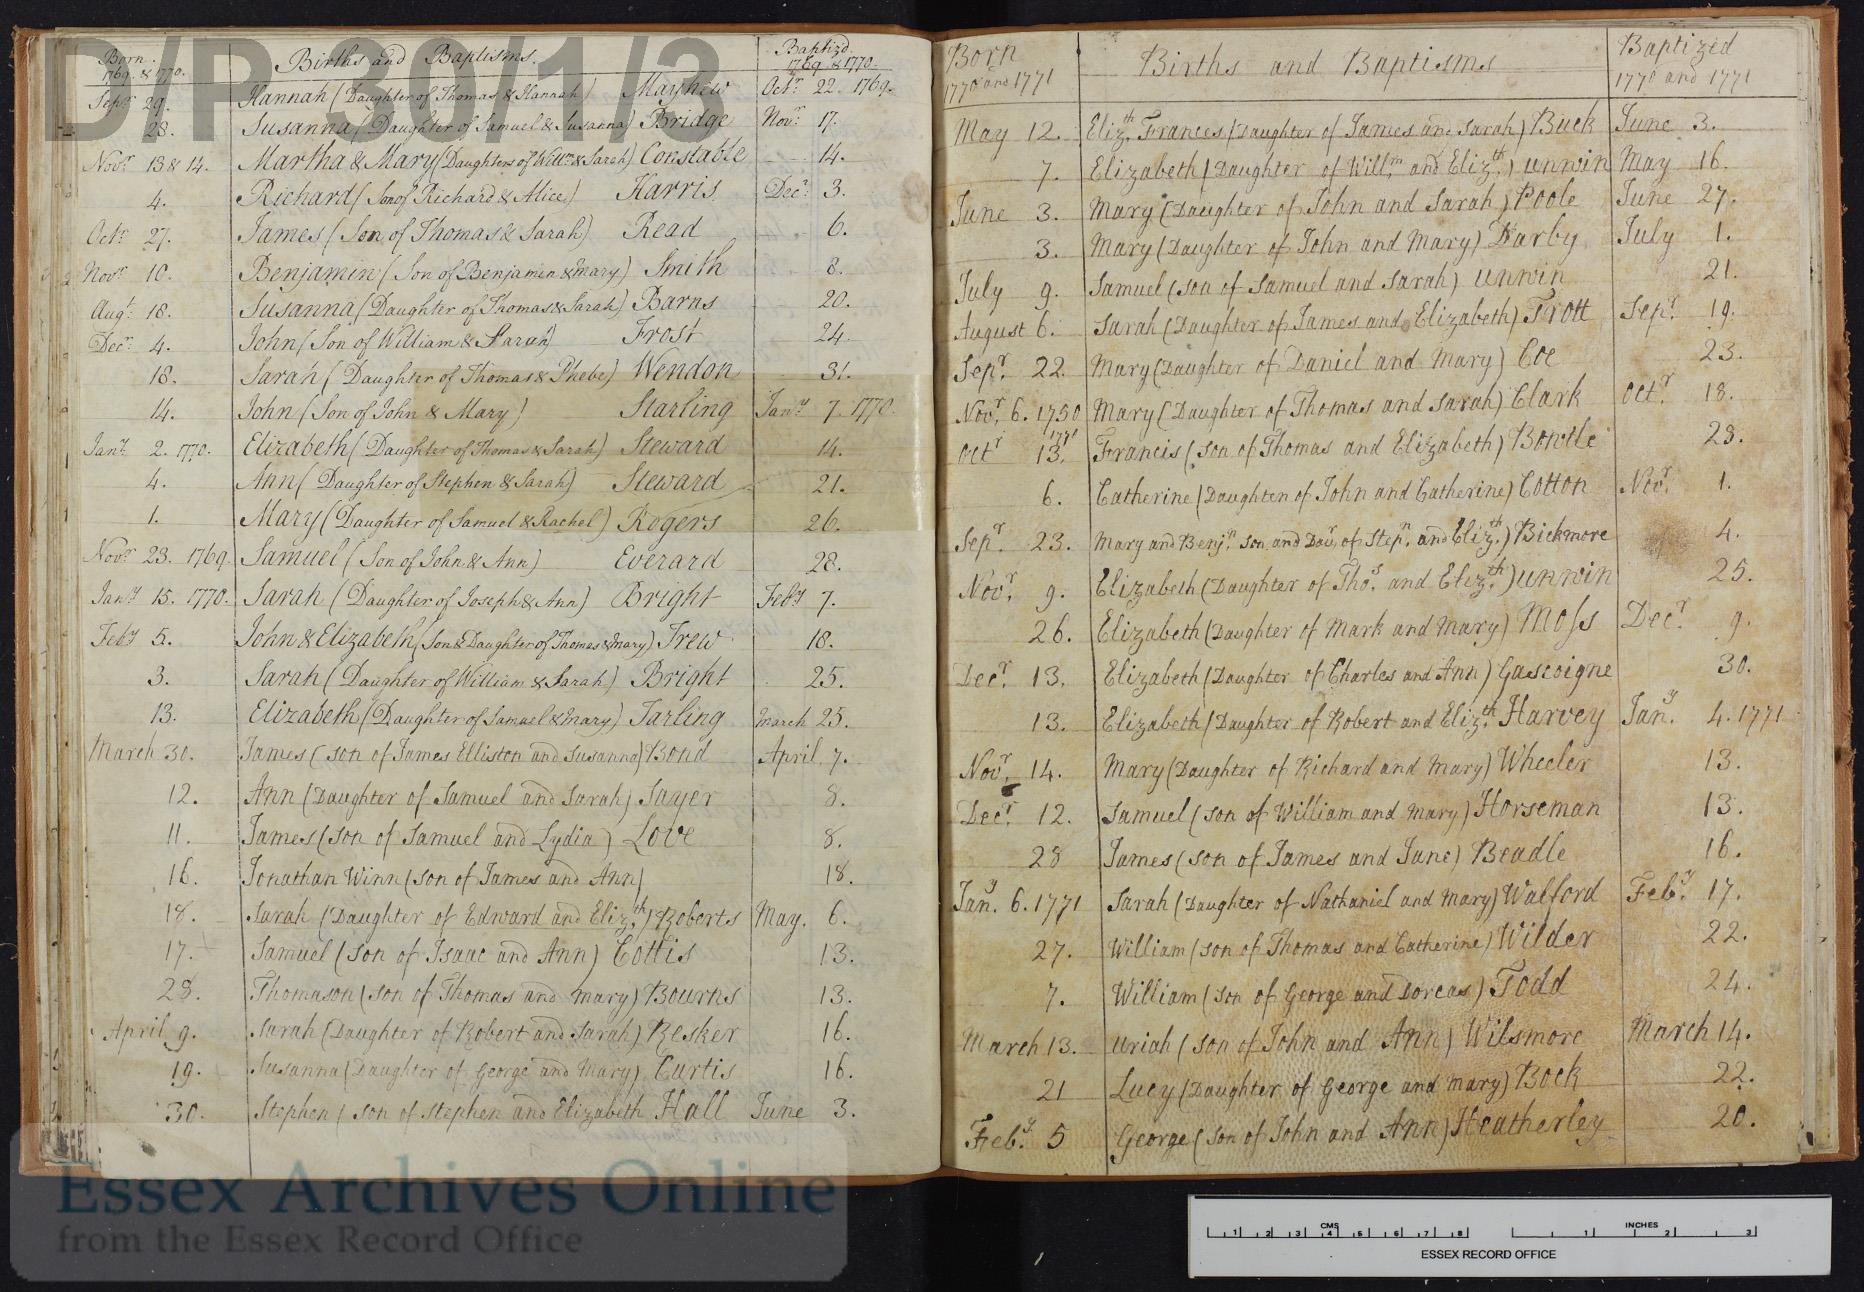 D/P 30/1/3
Born Births and Baptisms. Baptizd.
1769. & 1770. 1769. & 1770.
Sepr. 29. Hannah (Daughter of Thomas & Hannah) Mayhew Octr. 22. 1769.
28. Susanna (Daughter of Samuel & Susanna) Bridge Novr. 17.
Novr. 13 & 14. Martha & Mary (Daughters of Willm. & Sarah) Constable 14.
4. Richard (Son of Richard & Alice) Harris Decr. 3.
Octr. 27. James (Son of Thomas & Sarah) Read 6.
Novr. 10. Benjamin (Son of Benjamin & Mary) Smith 8.
Augt. 18. Susanna (Daughter of Thomas & Sarah) Barns 20.
Decr. 4. John (Son of William & Sarah) Frost 24.
18. Sarah (Daughter of Thomas & Phebe) Wendon 31.
14. John (Son of John & Mary) Starling Jany. 7. 1770.
Jany. 2. 1770. Elizabeth (Daughter of Thomas & Sarah) Steward 14.
4. Ann (Daughter of Stephen & Sarah) Steward 21.
1. Mary (Daughter of Samuel & Rachel) Rogers 26.
Novr. 23. 1769. Samuel (Son of John & Ann) Everard 28.
Jany. 15. 1770. Sarah (Daughter of Joseph & Ann) Bright Feby. 7.
Feby. 5. John & Elizabeth (Son & Daughter of Thomas & Mary) Trew 18.
3. Sarah (Daughter of William & Sarah) Bright 25.
13. Elizabeth (Daughter of Samuel & Mary) Tarling March 25.
March 30. James (son of James Elliston and Susanna) Bond April 7.
12. Ann (Daughter of Samuel and Sarah) Sayer 8.
11. James (son of Samuel and Lydia) Love 8.
16. Jonathan Winn (son of James and Ann) 18.
18. Sarah (Daughter of Edward and Elizth.) Roberts May. 6.
17. Samuel (son of Isaac and Ann) Cottis 13.
28. Thomason (son of Thomas and Mary) Bourns 13.
April 9. Sarah (Daughter of Robert and Sarah) Resker 16.
19. Susanna (Daughter of George and Mary) Curtis 16.
30. Stephen (son of Stephen and Elizabeth Hall June 3.
Born Births and Baptisms Baptized
1770 and 1771 1770 and 1771
May 12. Elizth. Frances (Daughter of James and Sarah) Buck June 3.
7. Elizabeth (Daughter of Willm. and Elizth.) unwin May 16.
June 3. Mary (Daughter of John and Sarah) Poole June 27.
3. Mary (Daughter of John and Mary) Darby July 1.
July 9. Samuel (son of Samuel and Sarah) unwin 21.
August 6. Sarah (Daughter of James and Elizabeth) Trott Sepr. 19.
Sepr. 22. Mary (Daughter of Daniel and Mary) Coe 23.
Novr. 6. 1750 Mary (Daughter of Thomas and Sarah) Clark Octr. 18.
Octr 13. Francis (son of Thomas and Elizabeth) Bowtle 28.
6. Catherine (Daughter of John and Catherine) Cotton Novr. 1.
Sepr. 23. Mary and Benjn. son and Daur. of Stepn. and Elizth.) Bickmore 4.
Novr. 9. Elizabeth (Daughter of Thos. and Elizth.) unwin 25.
26. Elizabeth (Daughter of Mark and Mary) Moss Decr. 9.
Decr. 13. Elizabeth (Daughter of Charles and Ann) Gascoigne 30.
13. Elizabeth (Daughter of Robert and Elizth. Harvey Jany. 4. 1771
Novr. 14. Mary (Daughter of Richard and Mary) Wheeler 13.
Decr. 12. Samuel (son of William and Mary) Horseman 13.
28 James (son of James and Jane) Beadle 16.
Jany. 6. 1771 Sarah (Daughter of Nathaniel and Mary) Walford Feby. 17.
27. William (son of Thomas and Catherine) Wilder 22.
7. William (son of George and Dorcas) Todd 24.
March 13. uriah (son of John and Ann) Wilsmore March 14.
21 Lucy (Daughter of George and Mary) Bock 22.
Feby. 5 George (son of John and Ann) Heatherley 20.
Essex Archives Online
from the Essex Record Office
CMS INCHES
1 2 3 4 5 6 7 8 1 2 3
ESSEX RECORD OFFICE